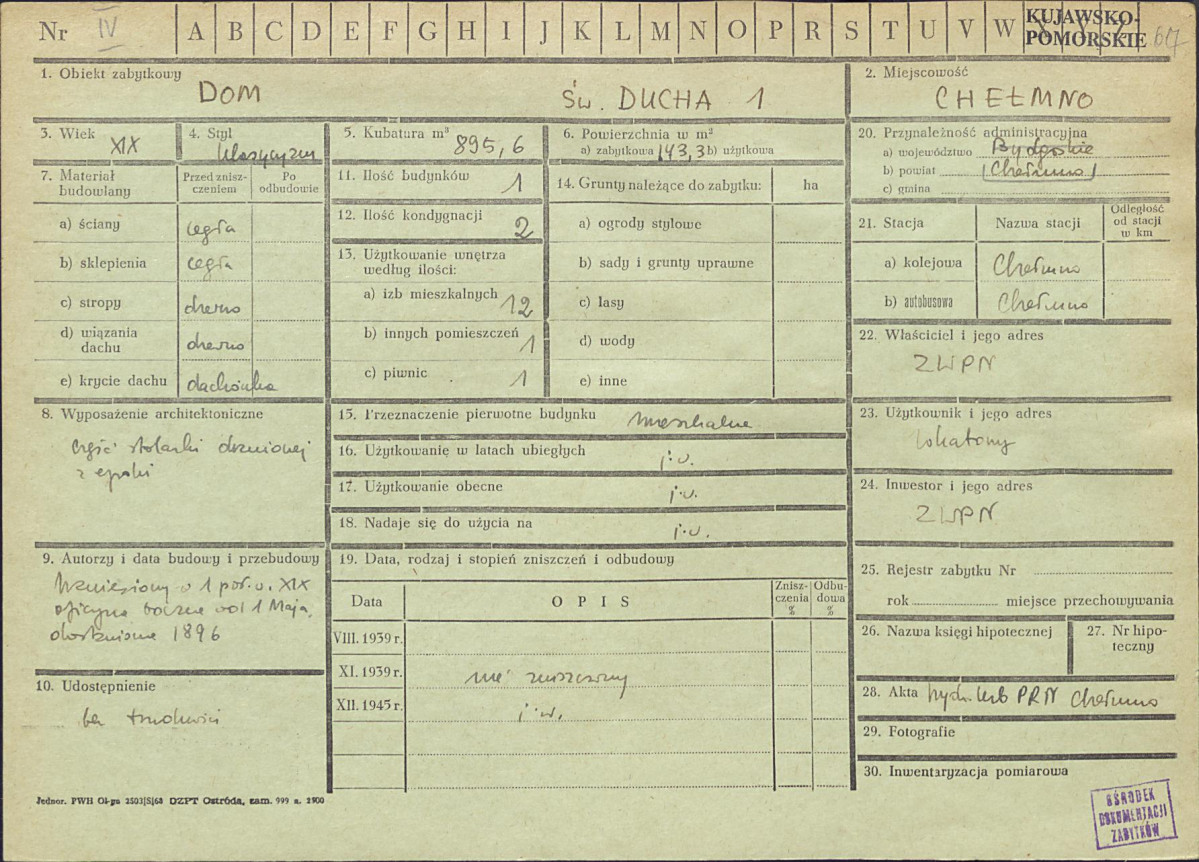 Nr IV A B C D E F G H I J K L M N O P R S T U V W KUJAWSKO-
POMORSKIE
1. Obiekt zabytkowy
DOM ŚW. DUCHA 1
2. Miejscowość
CHEŁMNO
3. Wiek
XIX
4. Styl
klasycyzm
5. Kubatura m³
895,6
6. Powierzchnia w m²
a) zabytkowa 143,3 b) użytkowa
20. Przynależność administracyjna
a) województwo Bydgoskie
b) powiat (Chełmno)
c) gmina
7. Materiał
budowlany
Przed znisz-
czeniem
Po
odbudowie
a) ściany cegła
b) sklepienia cegła
c) stropy drewno
d) wiązania
dachu drewno
e) krycie dachu dachówka
11. Ilość budynków 1
12. Ilość kondygnacji 2
13. Użytkowanie wnętrza
według ilości:
a) izb mieszkalnych 12
b) innych pomieszczeń 1
c) piwnic 1
14. Grunty należące do zabytku: ha
a) ogrody stylowe
b) sady i grunty uprawne
c) lasy
d) wody
e) inne
21. Stacja Nazwa stacji
Odległość
od stacji
w km
a) kolejowa Chełmno
b) autobusowa Chełmno
22. Właściciel i jego adres
ZWPN
8. Wyposażenie architektoniczne
część stolarki drzwiowej
z epoki
15. Przeznaczenie pierwotne budynku mieszkalne
16. Użytkowanie w latach ubiegłych j.w.
17. Użytkowanie obecne j.w.
18. Nadaje się do użycia na j.w.
23. Użytkownik i jego adres
lokatorzy
24. Inwestor i jego adres
ZWPN
9. Autorzy i data budowy i przebudowy
Wzniesiony w 1 poł. w. XIX
oficyna boczna od 1 Maja,
dostawiona 1896
10. Udostępnienie
bez trudności
19. Data, rodzaj i stopień zniszczeń i odbudowy
Data OPIS
Znisz-
czenia
%
Odbu-
dowa
%
VIII. 1939 r.
XI. 1939 r. nie zniszczony
XII. 1945 r. j.w.
25. Rejestr zabytku Nr
rok miejsce przechowywania
26. Nazwa księgi hipotecznej
27. Nr hipo-
teczny
28. Akta PRN Chełmno
29. Fotografie
30. Inwentaryzacja pomiarowa
Jednor. PWH Ol-ga 2503|S|68 OZPT Ostróda, zam. 999 n. 2500
OŚRODEK
DOKUMENTACJI
ZABYTKÓW